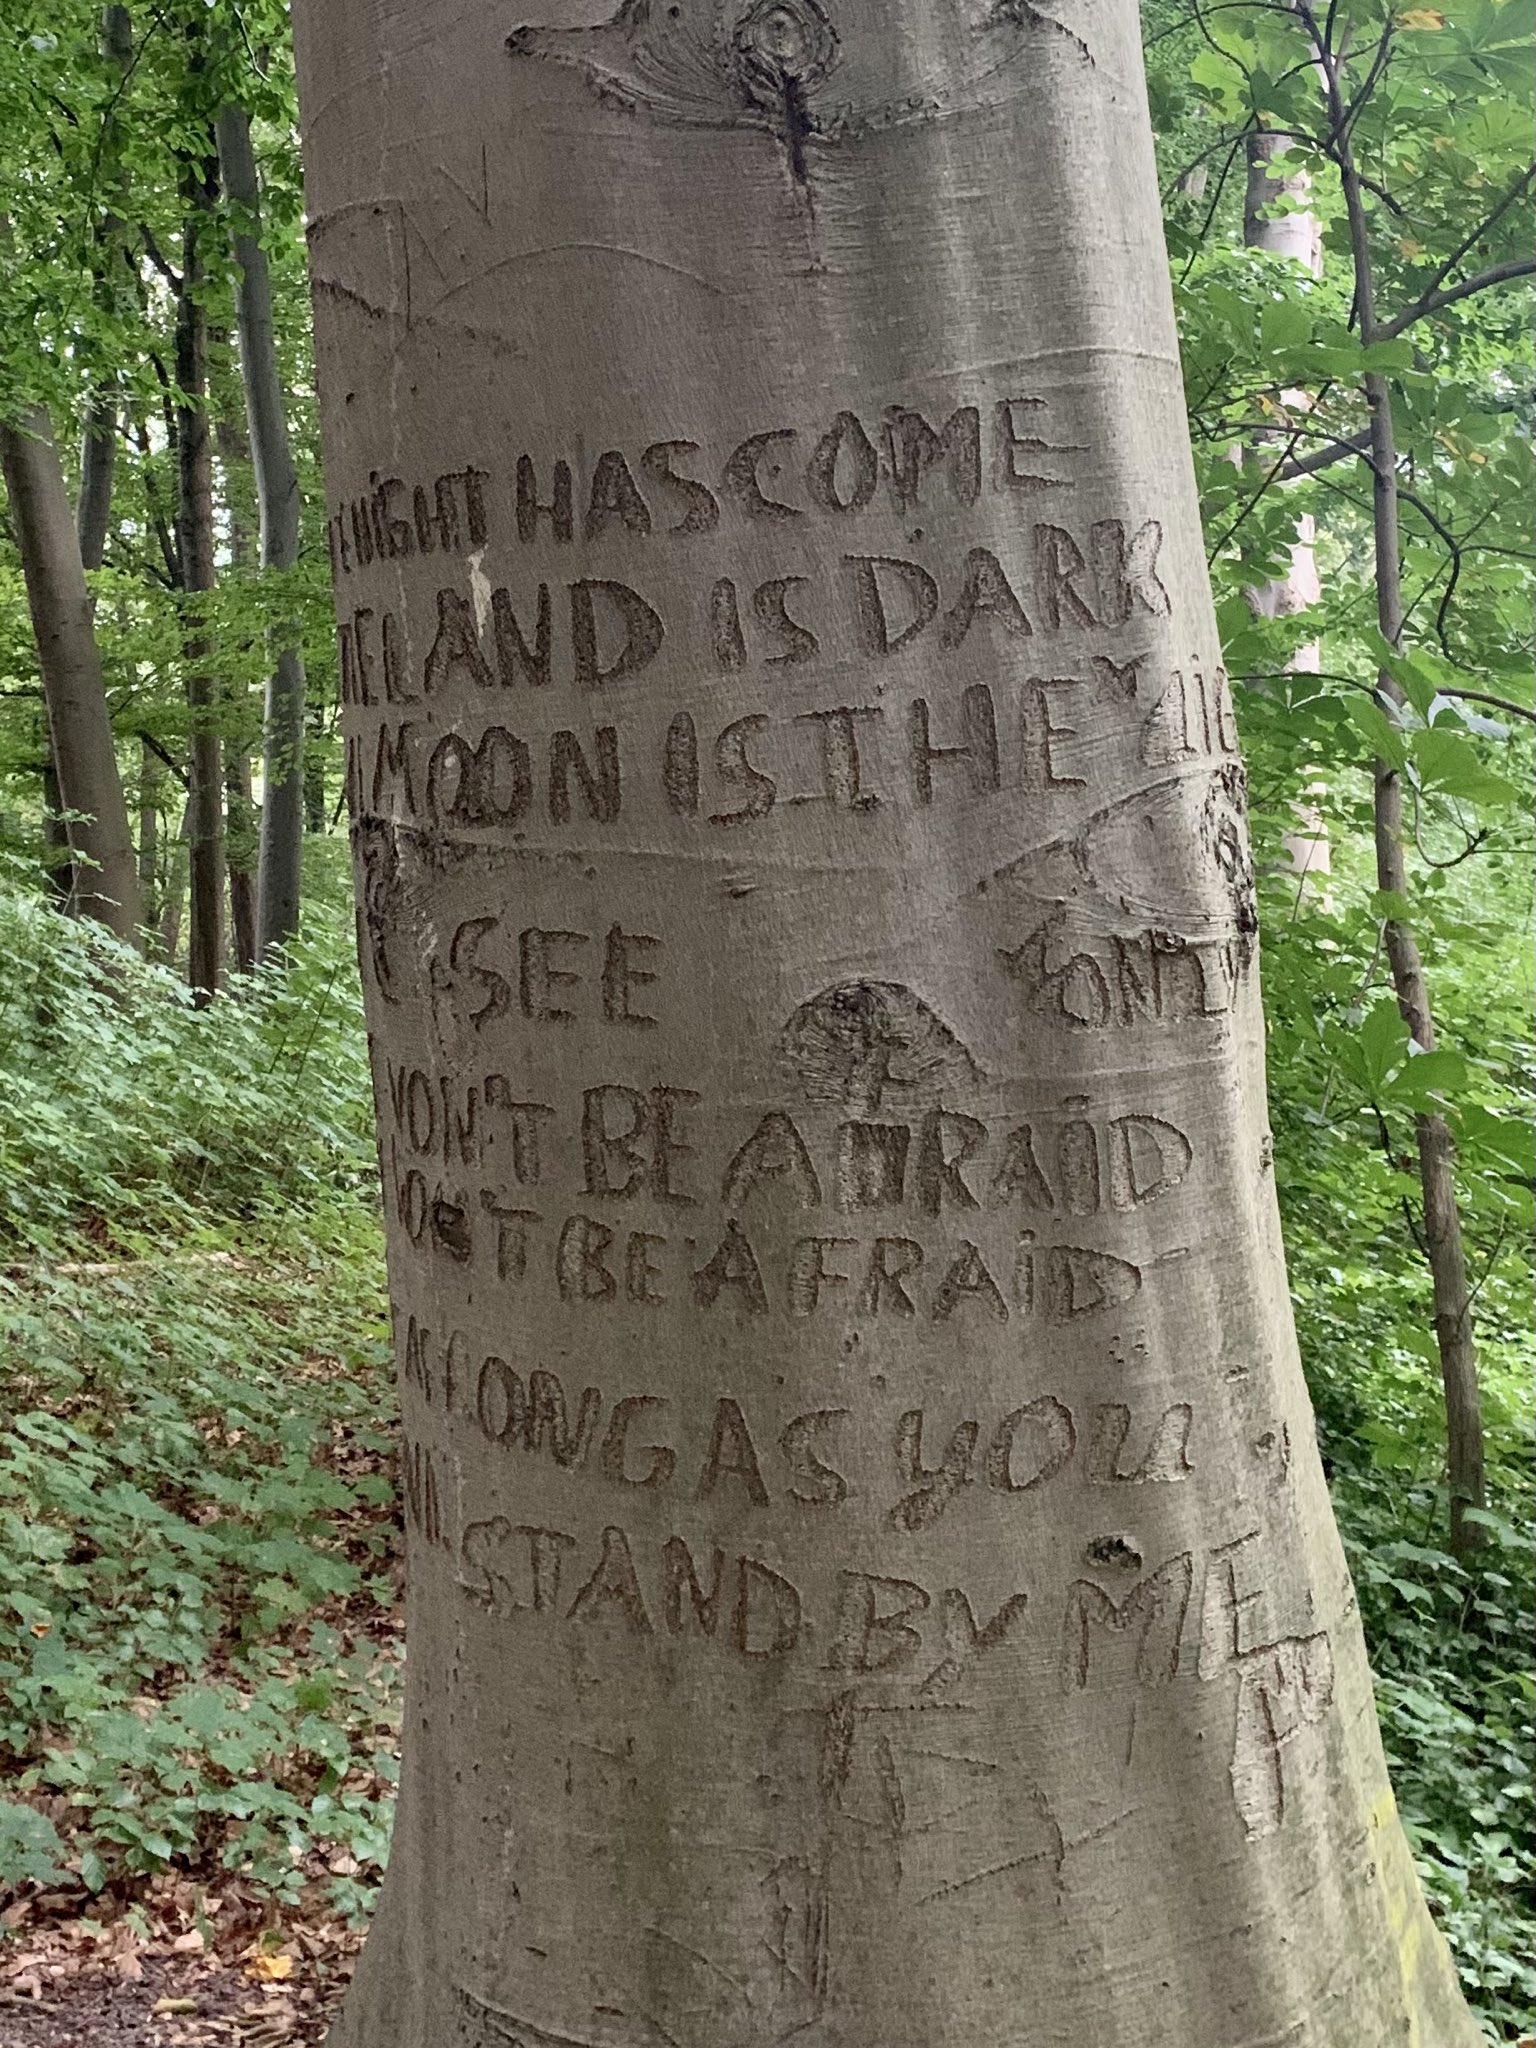 NIGHT HAS COME
LAND IS DARK
MOON IS THE LIG
SEE
WON'T BE AFRAID
WON'T BE AFRAID
AS LONG AS YOU
STAND BY ME